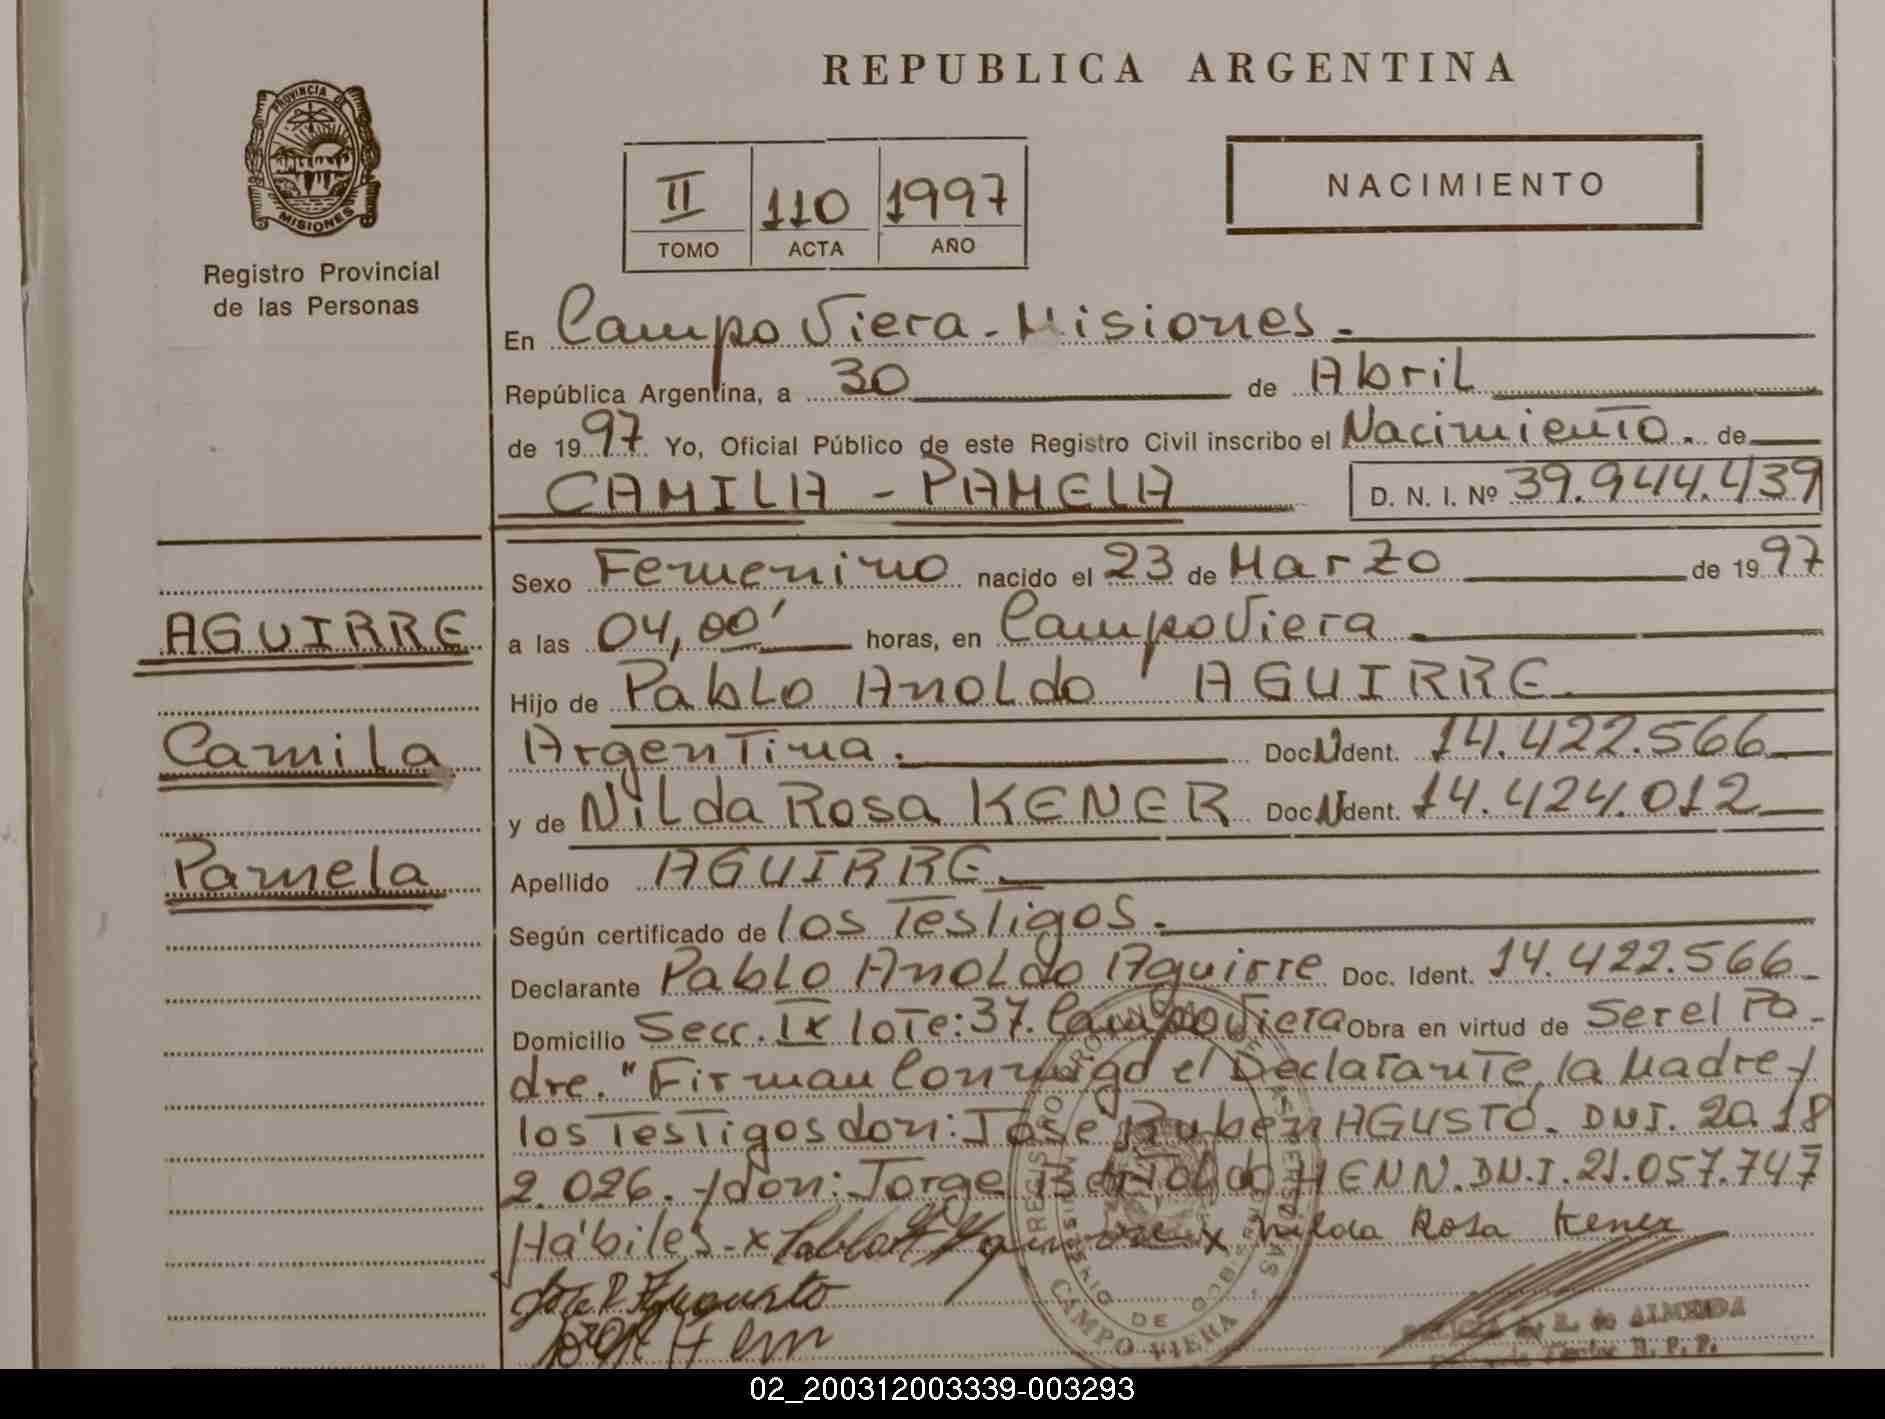 REPUBLICA ARGENTINA
PROVINCIA DE
MISIONES
Registro Provincial
de las Personas
II 110 1997
TOMO ACTA AÑO
NACIMIENTO
En Campo Viera - Misiones.-
República Argentina, a 30 de Abril
de 1997 Yo, Oficial Público de este Registro Civil inscribo el Nacimiento. de
CAMILA - PAMELA D. N. I. Nº 39.944.439
Sexo Femenino nacido el 23 de Marzo de 1997
AGUIRRE
a las 04,00' horas, en Campo Viera
Hijo de Pablo Anoldo AGUIRRE.
Camila
Argentina. Doc. N. Ident. 14.422.566
y de Nilda Rosa KENER Doc. N. Ident. 14.424.012
Pamela
Apellido AGUIRRE.
Según certificado de los Testigos.-
Declarante Pablo Anoldo Aguirre Doc. Ident. 14.422.566
Domicilio Secc. IX lote: 37. Campo Viera Obra en virtud de Ser el Pa-
dre. "Firman Conmigo el Declarante, la Madre y
los Testigos don: José Ruben AGUSTO. DNI. 20.18
2.026. y don: Jorge Bertoldo HENN. DN.I. 21.057.747
Hábiles.- x Aguirre x nilda Rosa Kener
José R Aguusto
Jorge Henn
CAMPO VIERA
de ALMEIDA
R. P. P.
02_200312003339-003293